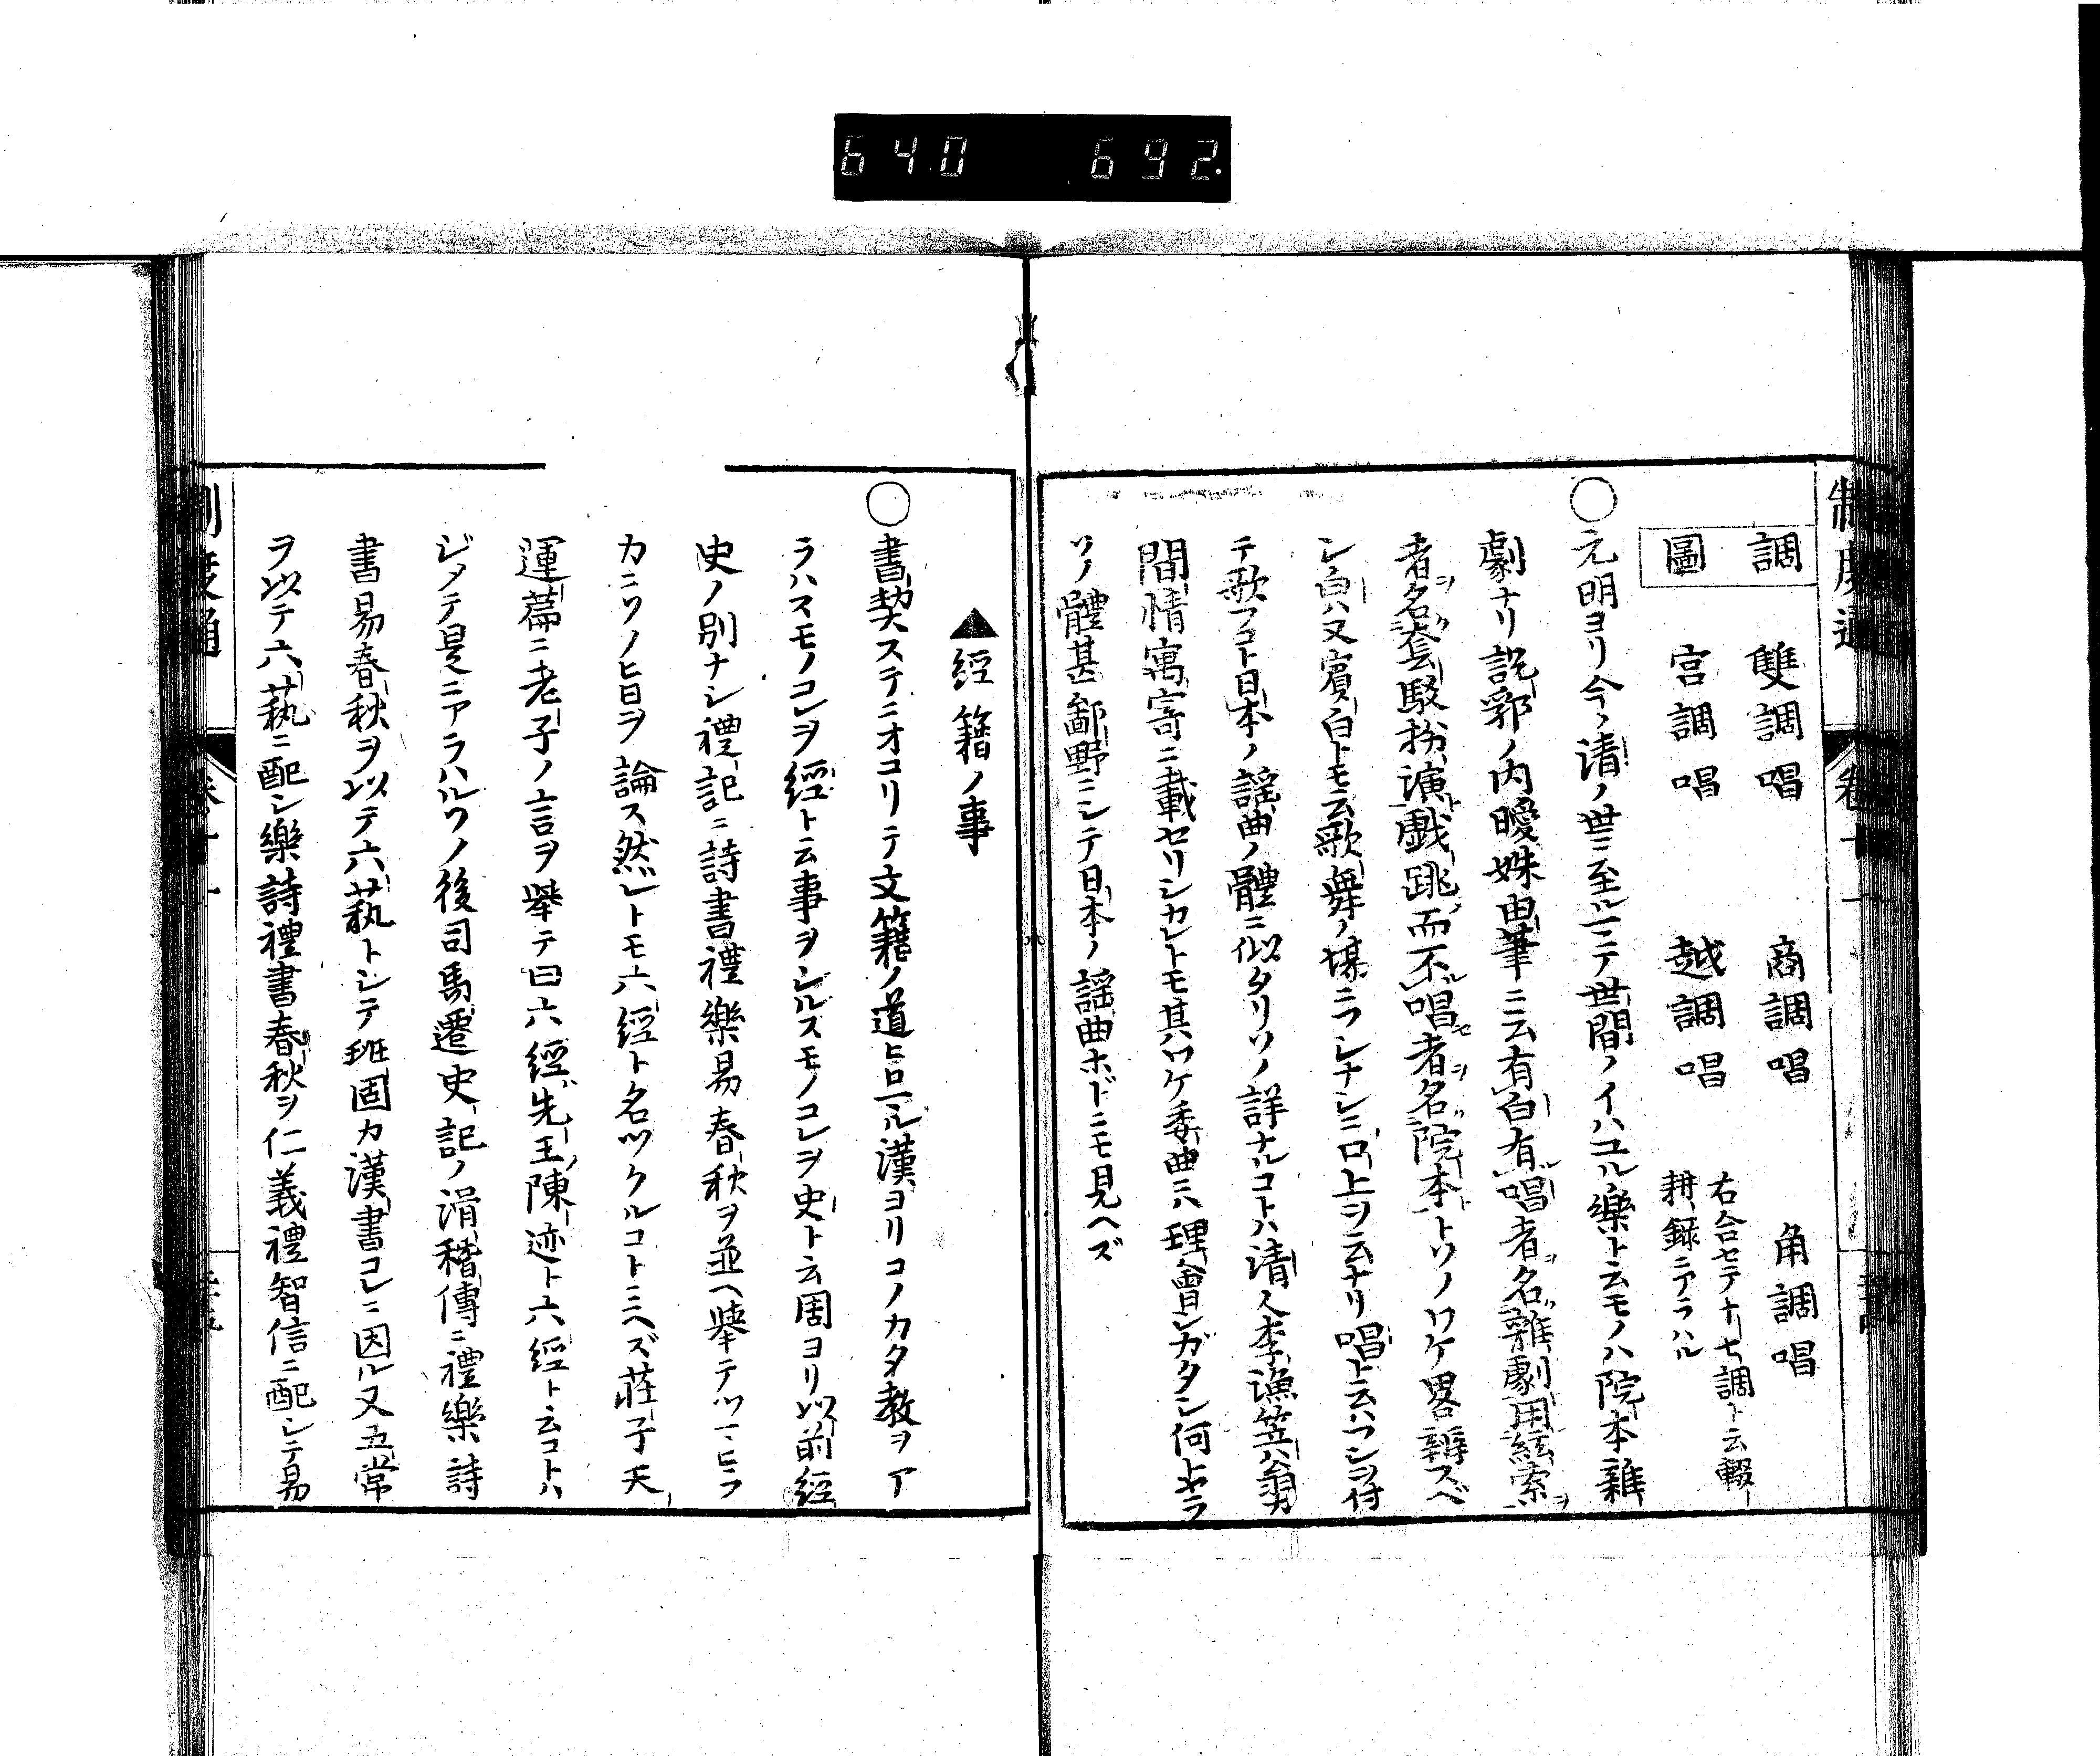 640 692.
制度通 卷十一
調 雙調唱 商調唱 角調唱
圖 宮調唱 越調唱 右合セテ十七調ト云輟
耕録ニアラハル
○元明ヨリ今ノ清ノ世ニ至ルマテ世間ノイハユル樂ト云モノハ院本雜
劇ナリ説郛ノ内曖姝由筆ニ云有白有唱者名雜劇用絃索
者名套數扮演戲跳而不唱者名院本トソノワケ畧辨スベ
シ白ハ又賓白トモ云歌舞ノ媒ニフシナシニ口上ヲ云ナリ唱ト云ハフシヲ付
テ歌フコト日本ノ謡曲ノ體ニ似タリソノ詳ナルコトハ清人李漁笠翁カ
間情寓寄ニ載セリシカレトモ其ワケ委曲ニハ理會シガタシ何トヤラ
ソノ體甚鄙野ニシテ日本ノ謡曲ホドニモ見ヘズ
▲經籍ノ事
○書契ステニオコリテ文籍ノ道ヒロマル漢ヨリコノカタ教ヲア
ラハスモノコレヲ經ト云事ヲシルスモノコレヲ史ト云周ヨリ以前經
史ノ別ナシ禮記ニ詩書禮樂易春秋ヲ並ヘ擧テツマヒラ
カニソノ旨ヲ論ス然レトモ六經ト名ツクルコトミヘズ莊子天
運篇ニ老子ノ言ヲ擧テ曰六經先王陳迹ト六經ト云コトハ
ジメテ是ニアラハルソノ後司馬遷史記ノ滑稽傳ニ禮樂詩
書易春秋ヲ以テ六藝トシテ班固カ漢書コレニ因ル又五常
ヲ以テ六藝ニ配シ樂詩禮書春秋ヲ仁義禮智信ニ配シテ易
制度通 卷十一